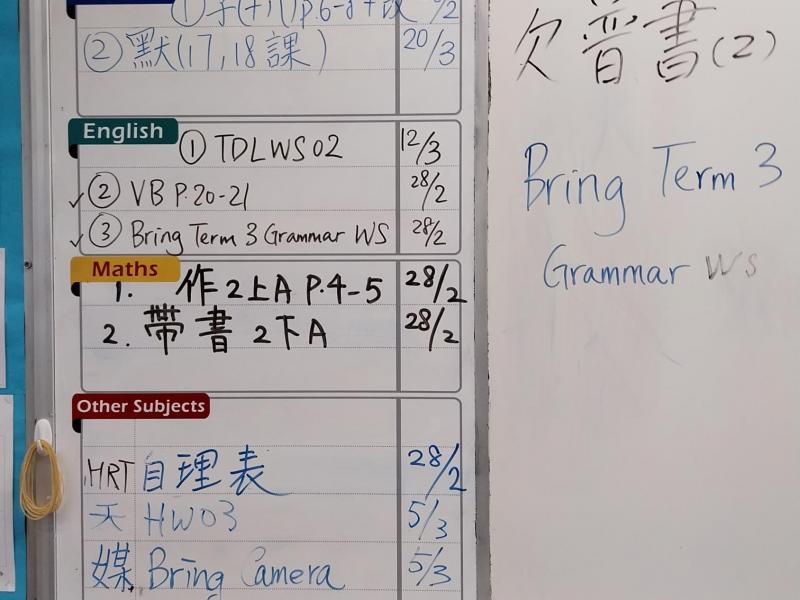 p.6-8 /2
② 默(17,18課) 20/3
English
① TDLWS02 12/3
② VB P.20-21 28/2
③ Bring Term 3 Grammar WS 28/2
Maths
1. 作2上A P.4-5 28/2
2. 帶書 2下A 28/2
Other Subjects
HRT 自理表 28/2
天 HW03 5/3
媒 Bring Camera 5/3
欠 音書(2)
Bring Term 3
Grammar WS